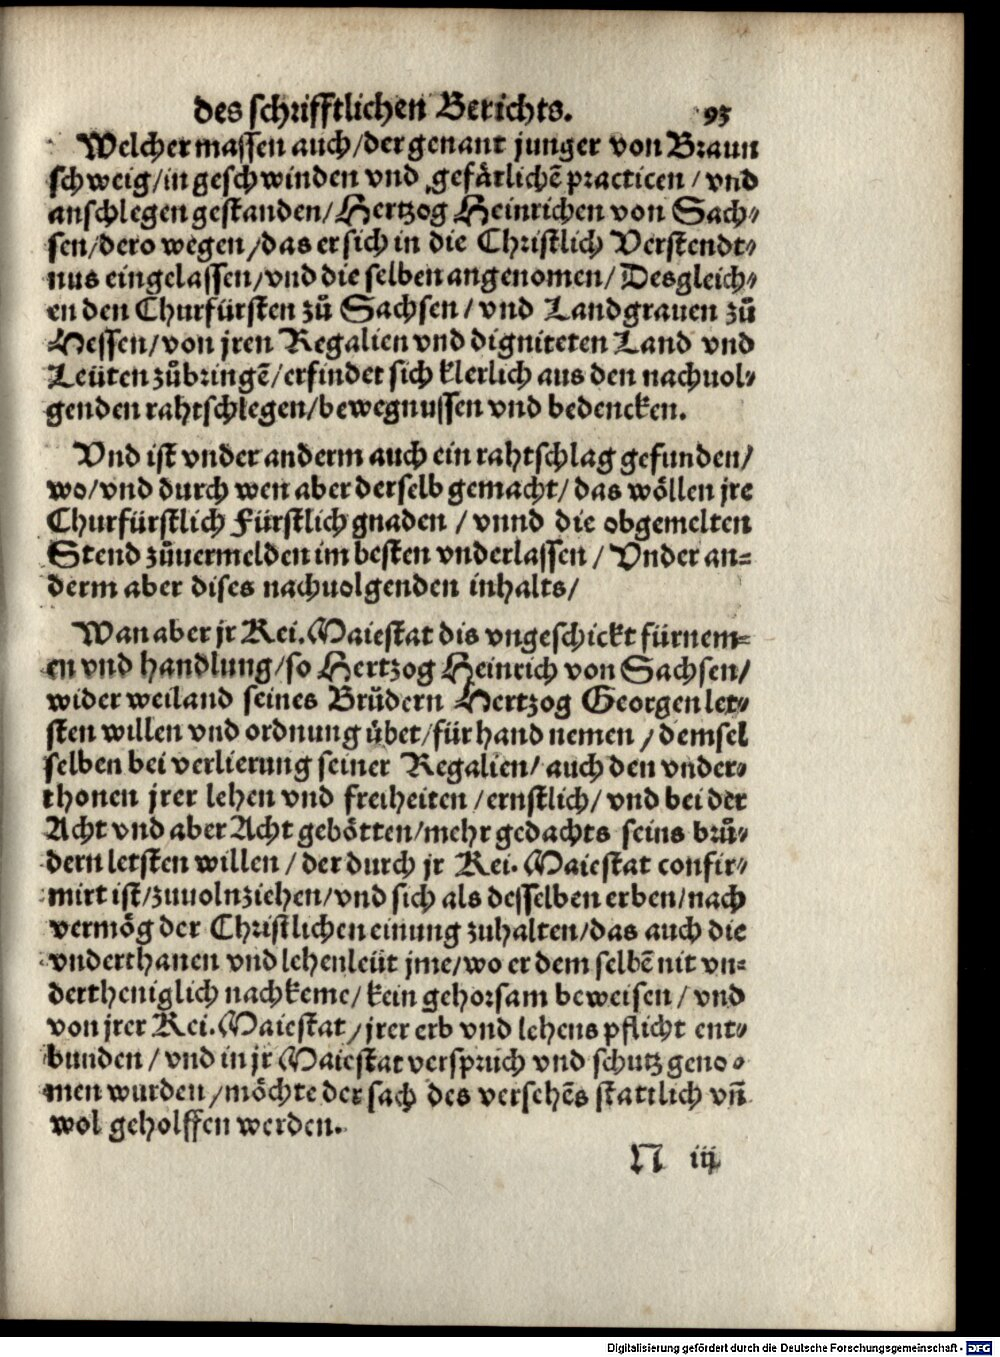 des schrifftlichen Berichts. 93
Welcher massen auch/der genant junger von Braun
schweig/in geschwinden vnd gefärlichē practicen/vnd
anschlegen gestanden/Hertzog Heinrichen von Sach⸗
sen/dero wegen/das er sich in die Christlich Verstendt⸗
nus eingelassen/vnd die selben angenomen/Desgleich⸗
en den Churfürsten zů Sachsen/vnd Landgrauen zů
Hessen/von jren Regalien vnd digniteten Land vnd
Leüten zůbringē/erfindet sich klerlich aus den nachuol⸗
genden rahtschlegen/bewegnussen vnd bedencken.
Vnd ist vnder anderm auch ein rahtschlag gefunden/
wo/vnd durch wen aber derselb gemacht/das wöllen jre
Churfürstlich Fürstlich gnaden/vnnd die obgemelten
Stend zůuermelden im besten vnderlassen/Vnder an⸗
derm aber dises nachuolgenden inhalts/
Wan aber jr Kei. Maiestat dis vngeschickt fürnem⸗
en vnd handlung/so Hertzog Heinrich von Sachsen/
wider weiland seines Brüdern Hertzog Georgen let⸗
sten willen vnd ordnung übet/für hand nemen/demsel
selben bei verlierung seiner Regalien/auch den vnder⸗
thonen jrer lehen vnd freiheiten/ernstlich/vnd bei der
Acht vnd aber Acht gebötten/mehr gedachts seins brů⸗
dern letsten willen/der durch jr Kei. Maiestat confir⸗
mirt ist/zuuolnziehen/vnd sich als desselben erben/nach
vermög der Christlichen einung zuhalten/das auch die
vnderthanen vnd lehenleüt jme/wo er dem selbē nit vn⸗
dertheniglich nachkeme/kein gehorsam beweisen/vnd
von jrer Kei. Maiestat/jrer erb vnd lehens pflicht ent⸗
bunden/vnd in jr Maiestat verspruch vnd schutz geno⸗
men wurden/möchte der sach des versehēs stattlich vñ
wol geholffen werden.
N iij
Digitalisierung gefördert durch die Deutsche Forschungsgemeinschaft - DFG